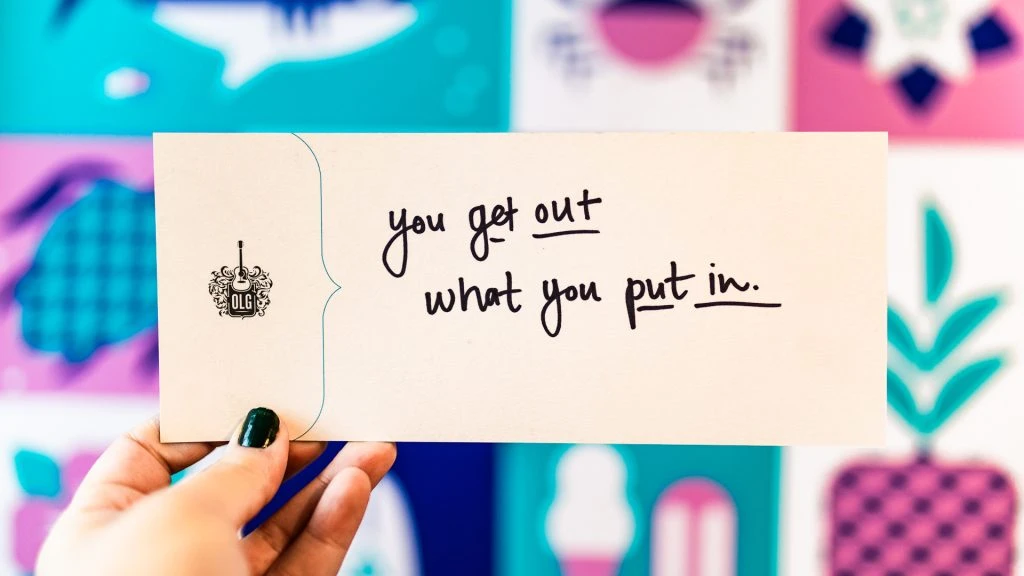 you get out
what you put in.
OLG